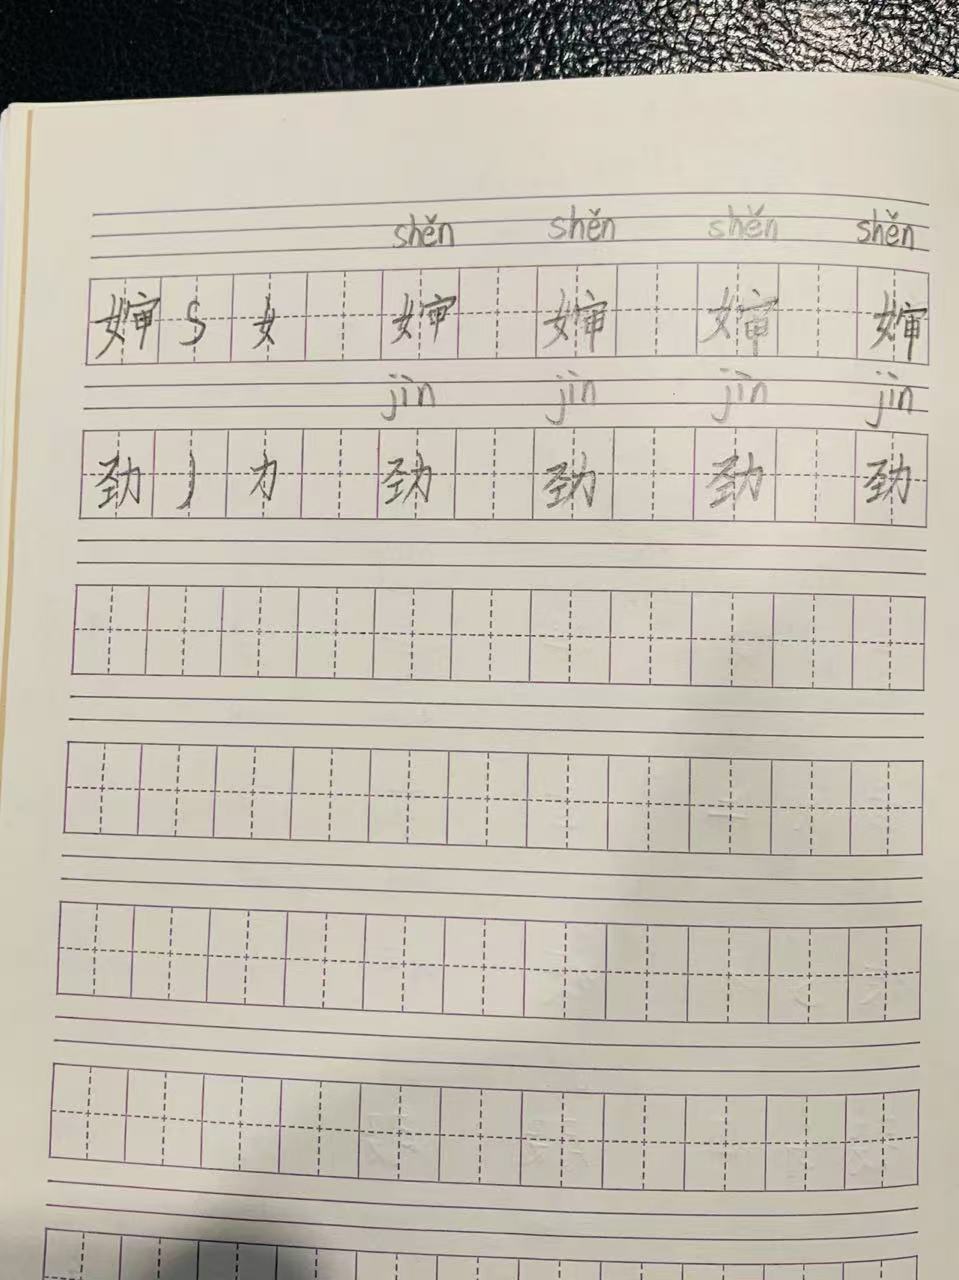 shěn shěn shěn shěn
婶 S 女 婶 婶 婶 婶
jìn jìn jìn jìn
劲 丿 力 劲 劲 劲 劲